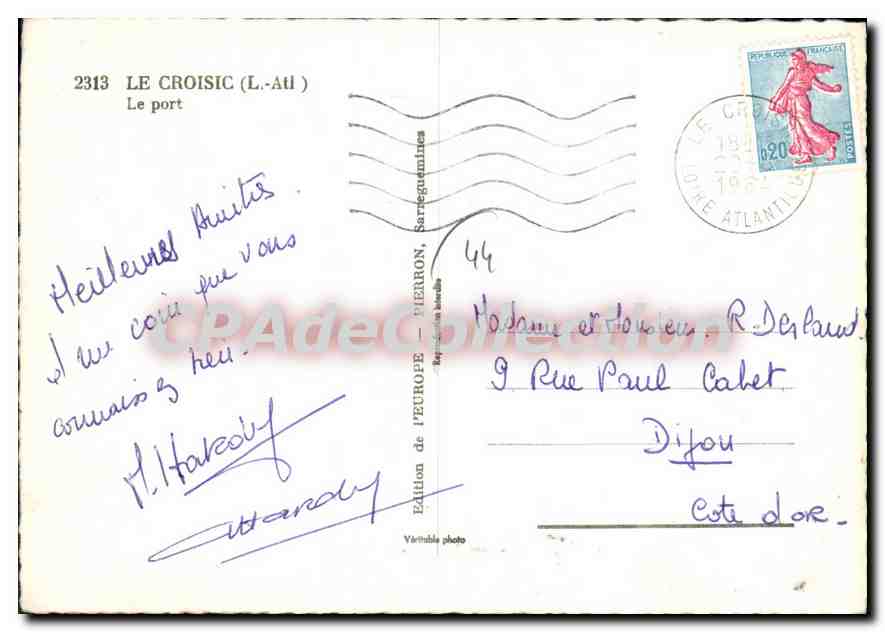 2313 LE CROISIC (L.-Atl )
Le port
REPUBLIQUE FRANÇAISE
0,20
POSTES
LE CROISIC
18
LOIRE ATLANTIQUE
Meilleures Amitiés
d'un coin que vous
connaissez bien.
M. Hardy
Hardy
Edition de l'EUROPE — PIERRON, Sarreguemines
Reproduction interdite
Véritable photo
44
Madame et Monsieur R. Desland
9 Rue Paul Cabet
Dijon
Cote d'OR -
CPAdeCollection